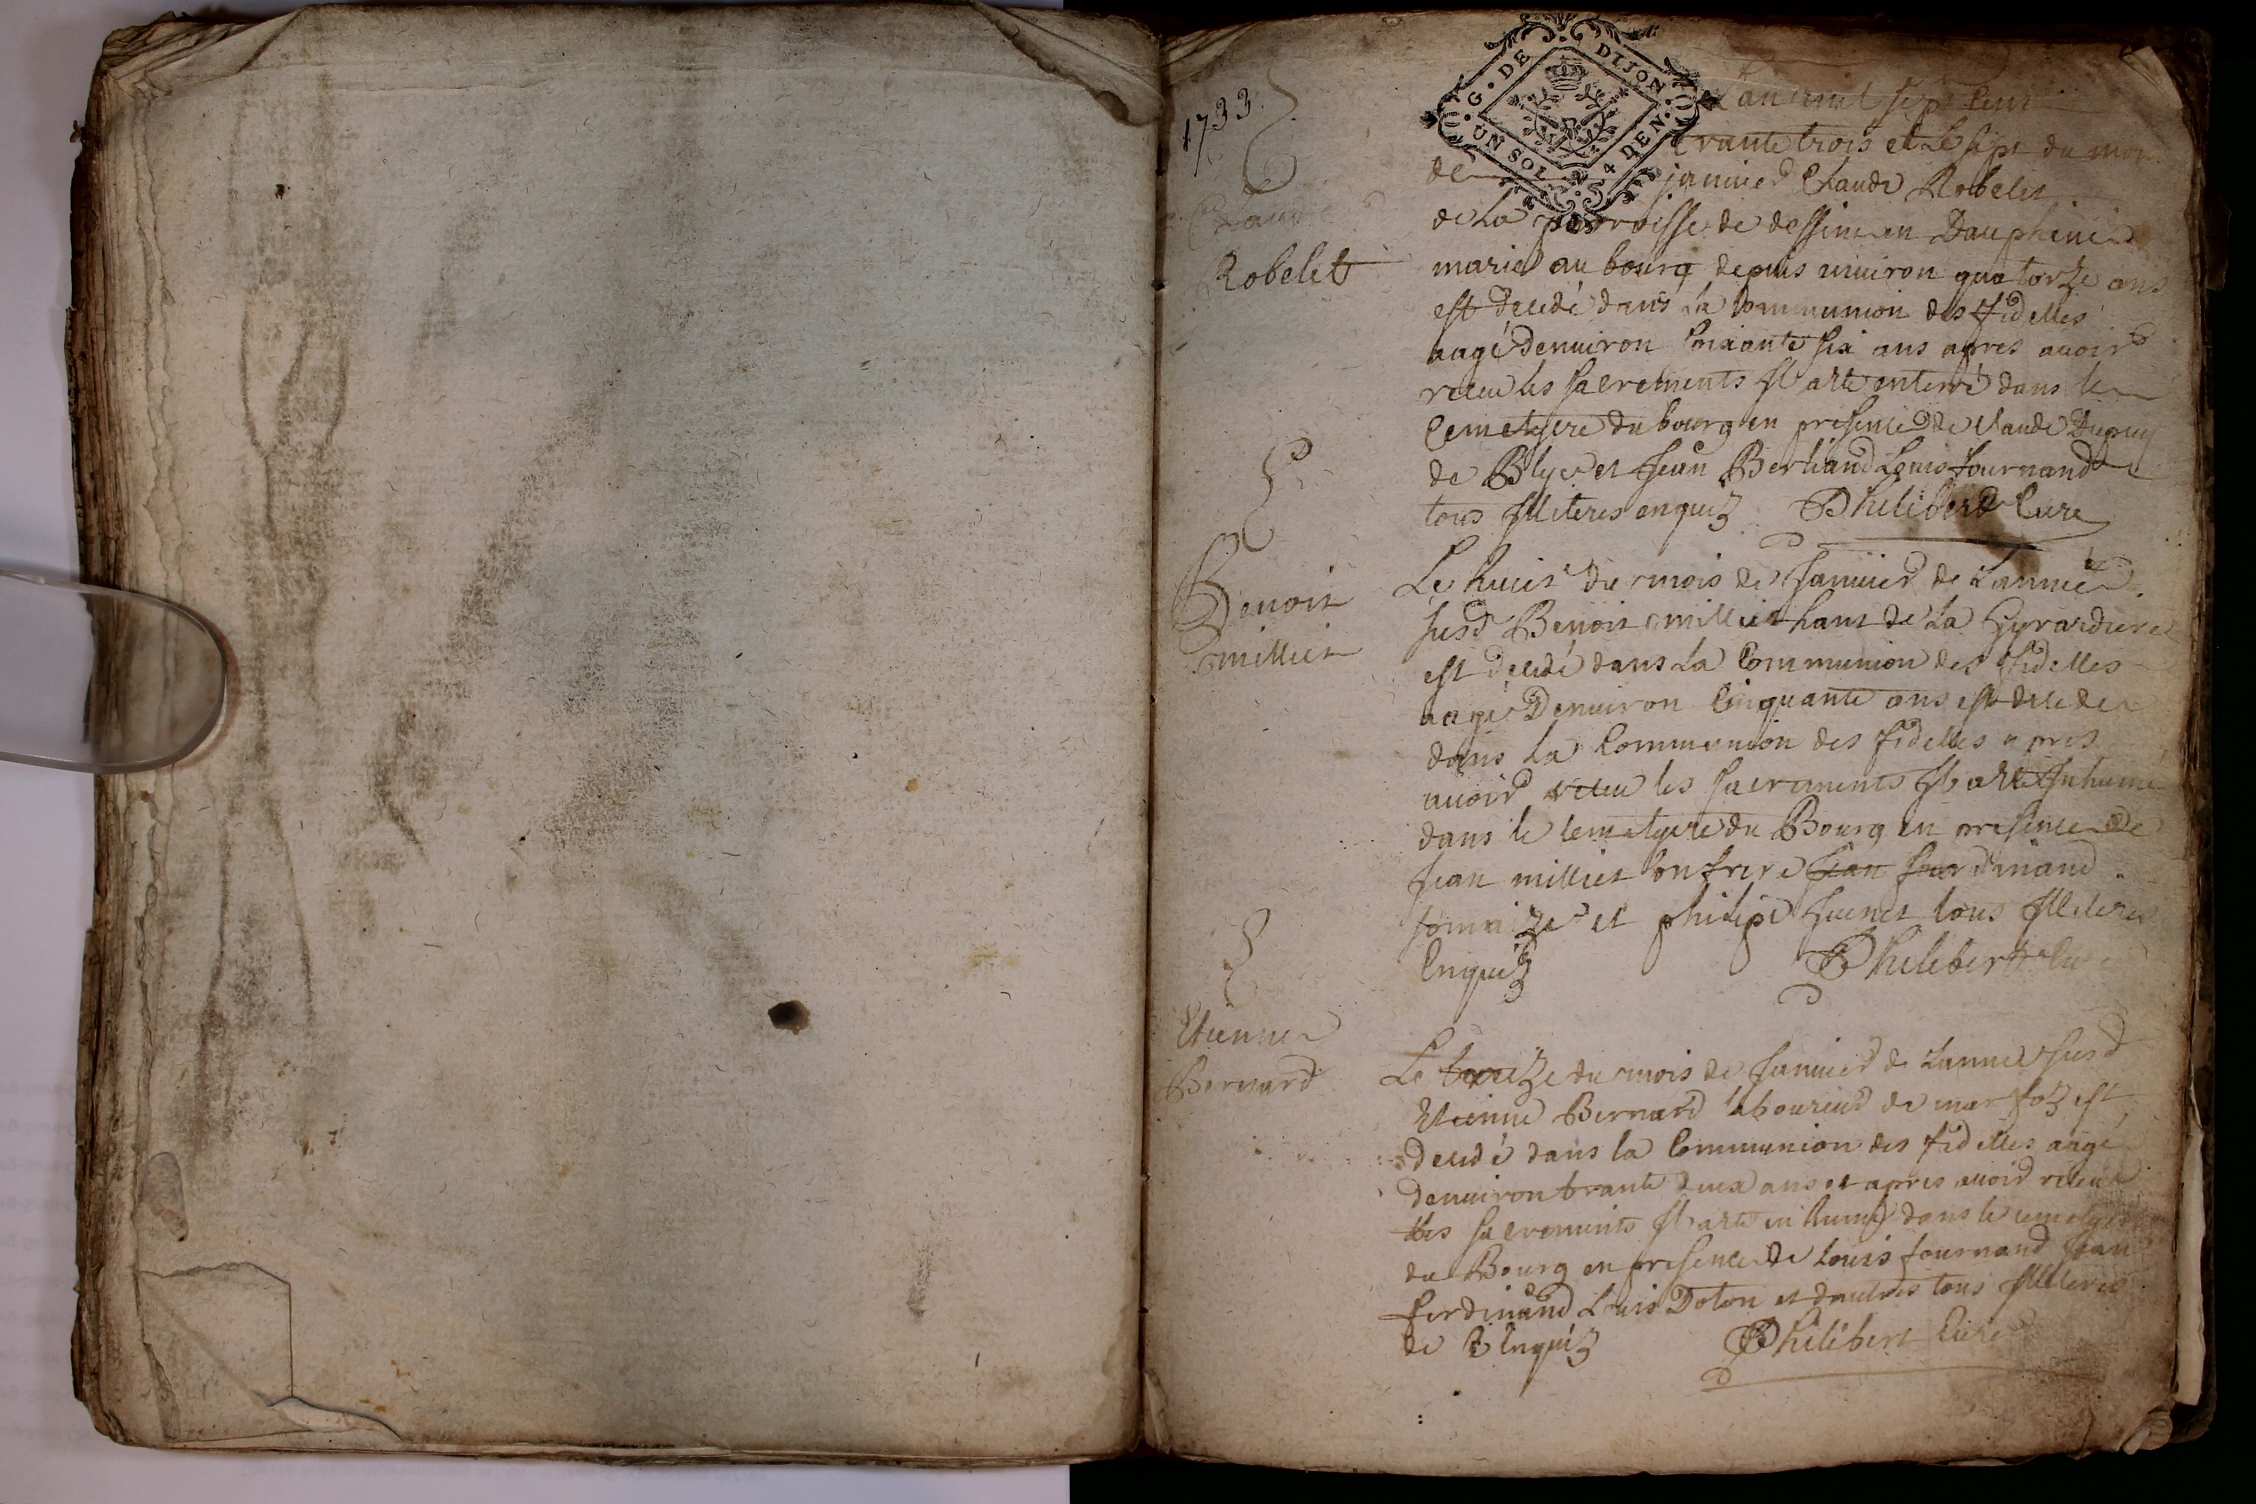 1733
G. DE DIJON
UN SOL 4 DEN.
Lan mil sept cent
trante trois et Le sept du mois
de janvier Claude Robelet
Claude
Robelet
de La parroisse de dessine en Dauphiné
marié au bourg depuis enuiron quatorze ans
est decedé dans La Communion des fidelles
aagé denuiron soixante six ans apres auoir
receu les sacrements Il a este enterré dans le
Cemetyere du bourg en presence de Claude Dupuy
de Blye et Jean Berliand Louis fournand
tous Illiteres enquis Philibert Cure
Benoit
millict
Le huict du mois de Januier de Lannée
susd Benoit millict hant de La Gyrardiere
est decedé dans La Communion des fidelles
aagé Denuiron Cinquante ans est decede
dans La Communion des fidelles apres
auoir receu les sacrements Il a este Inhumé
dans le Cemetyere du Bourg en presence de
Jean millict son frere Jean ferdinand
et philipe tous Illiteres
Enquis Philibert Cure
Etienne
Bernard
Le treize du mois de Januier de Lannee susd
Etienne Bernard laboureur de marfoz est
decedé dans la Communion des fidelles aagé
denuiron trante deux ans et apres auoir receu
les sacrements Il a este inhumé dans le cemetyere
du Bourg en presence de Louis fournand Jean
ferdinand Louis Doton et dautres tous Illiteres
de Enquis Philibert Cure